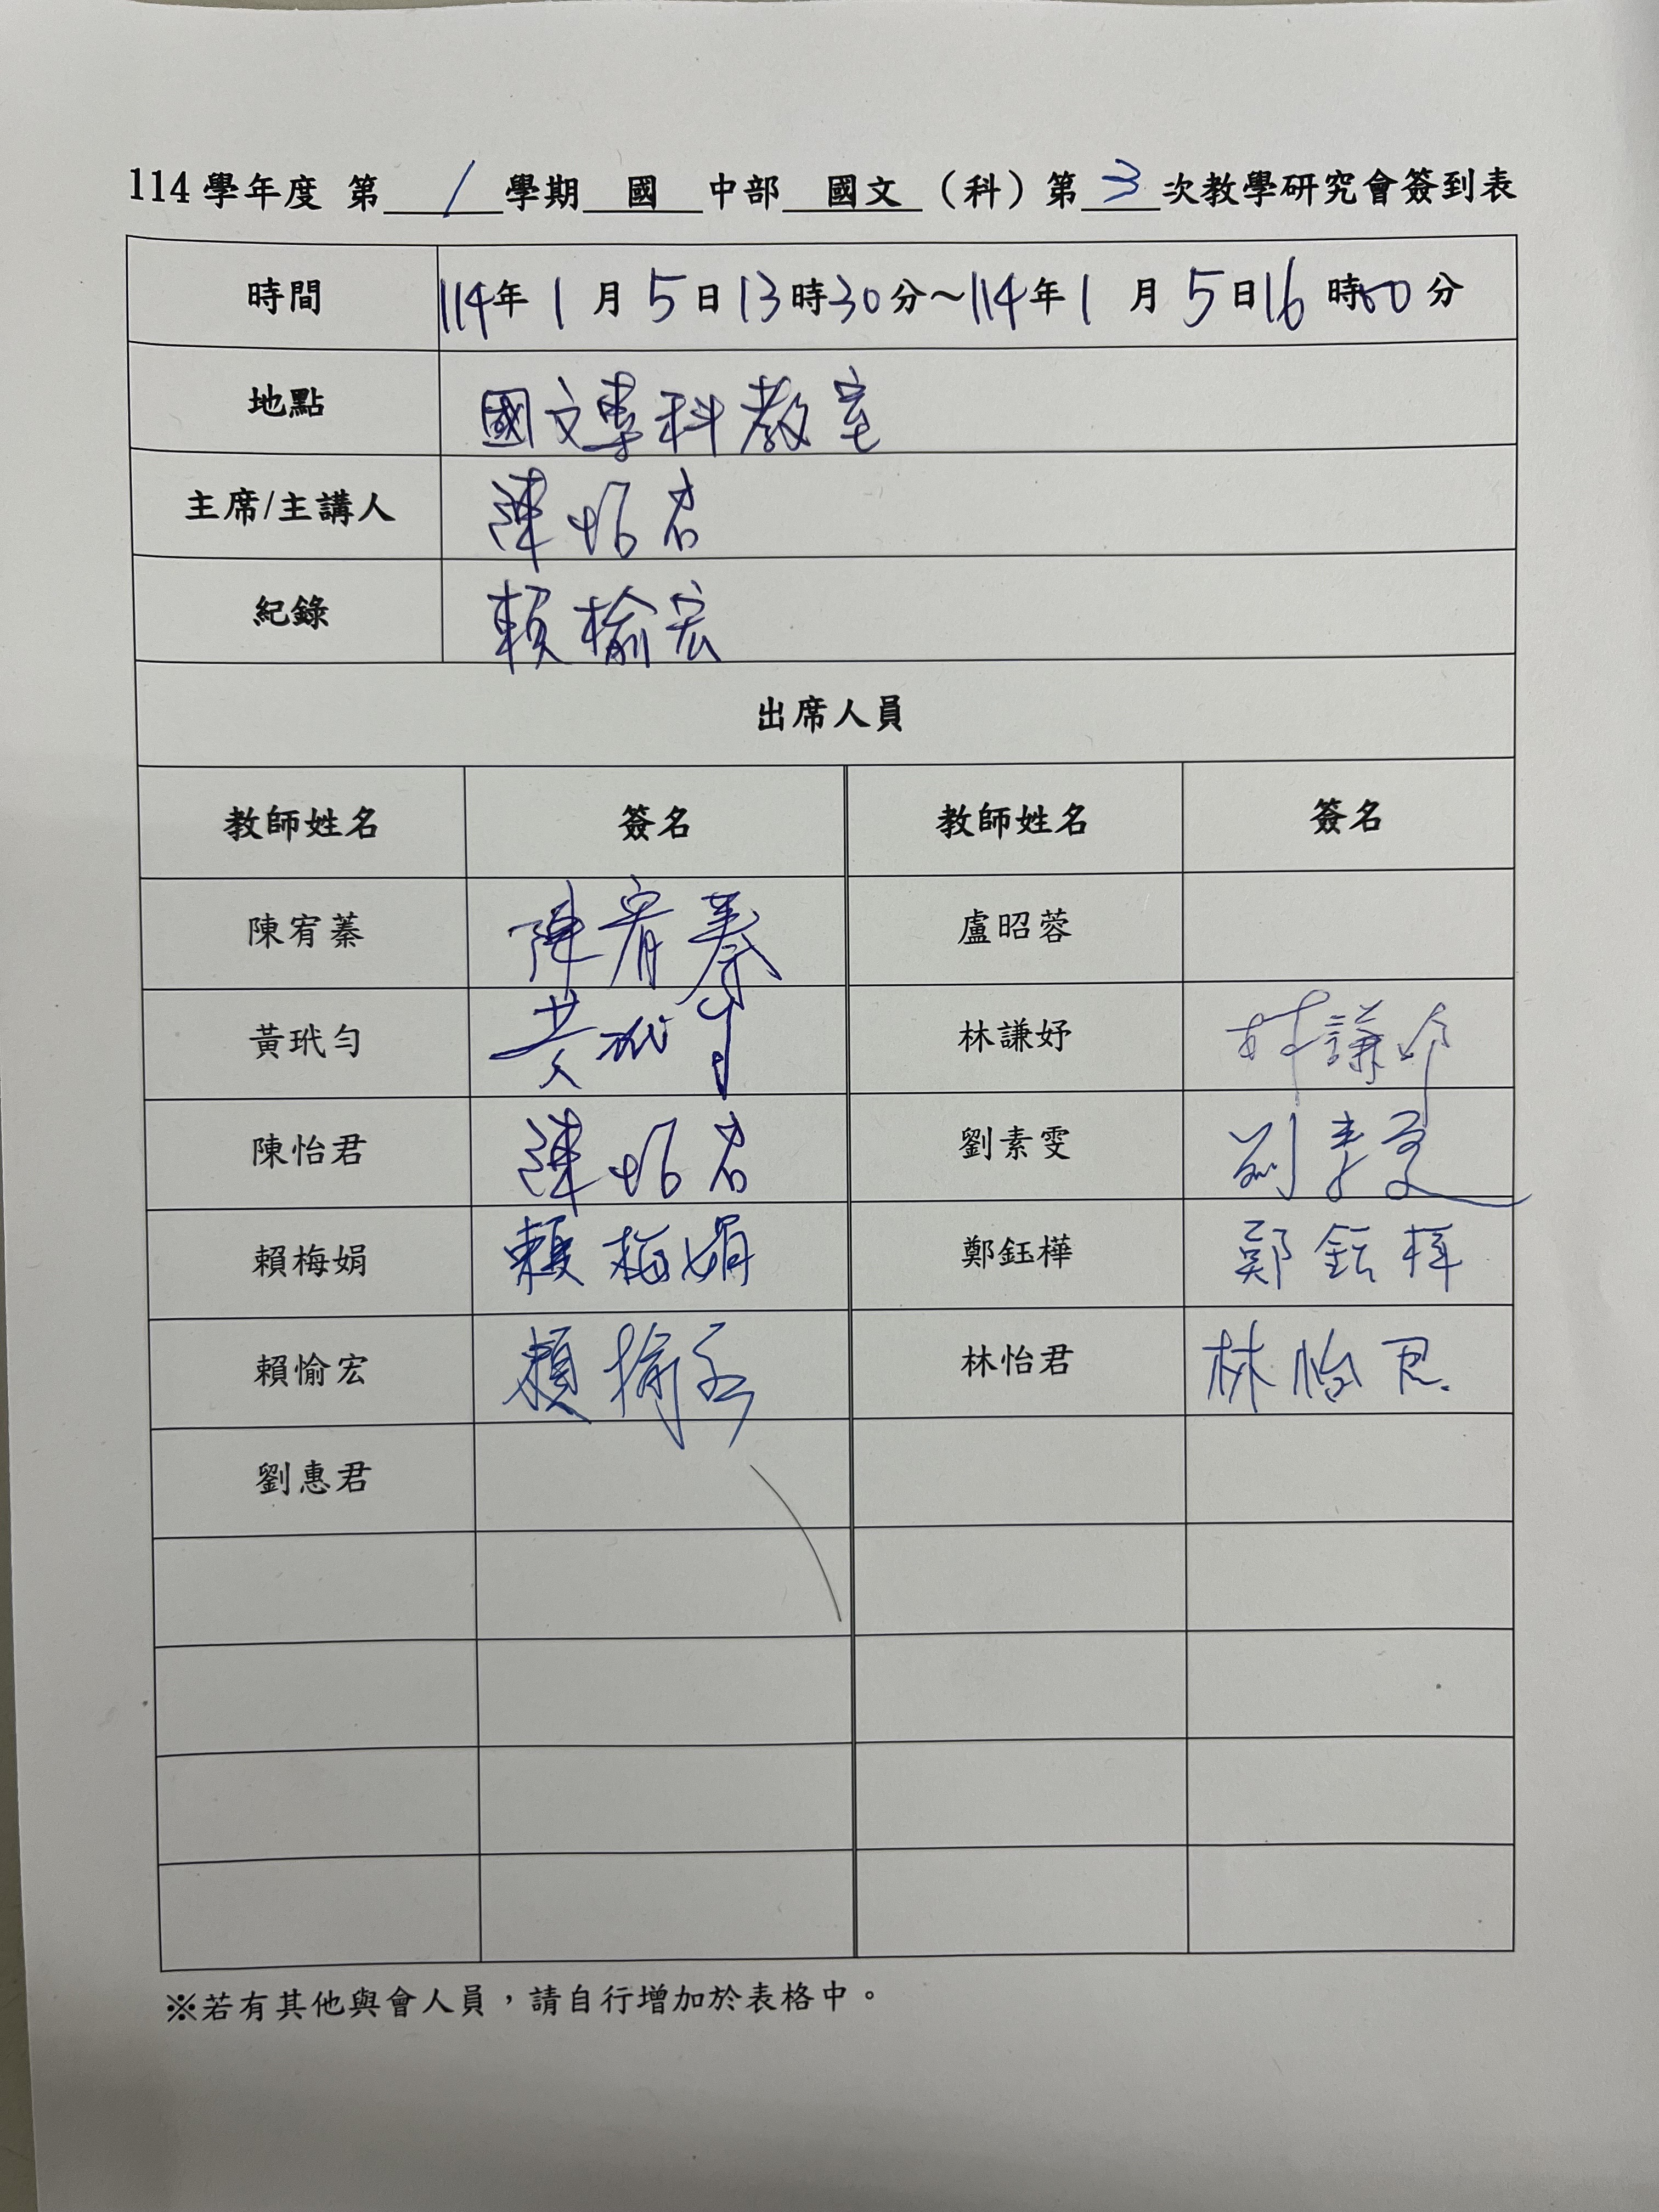 114學年度 第 1 學期 國 中部 國文（科）第 3 次教學研究會簽到表
時間 114年 1 月 5日13時30分～114年 1 月 5日16時00分
地點 國文專科教室
主席/主講人 陳怡君
紀錄 賴愉宏
出席人員
教師姓名 簽名 教師姓名 簽名
陳宥蓁 陳宥蓁 盧昭蓉
黃玳勻 黃玳勻 林謙妤 林謙妤
陳怡君 陳怡君 劉素雯 劉素雯
賴梅娟 賴梅娟 鄭鈺樺 鄭鈺樺
賴愉宏 賴愉宏 林怡君 林怡君
劉惠君
※若有其他與會人員，請自行增加於表格中。